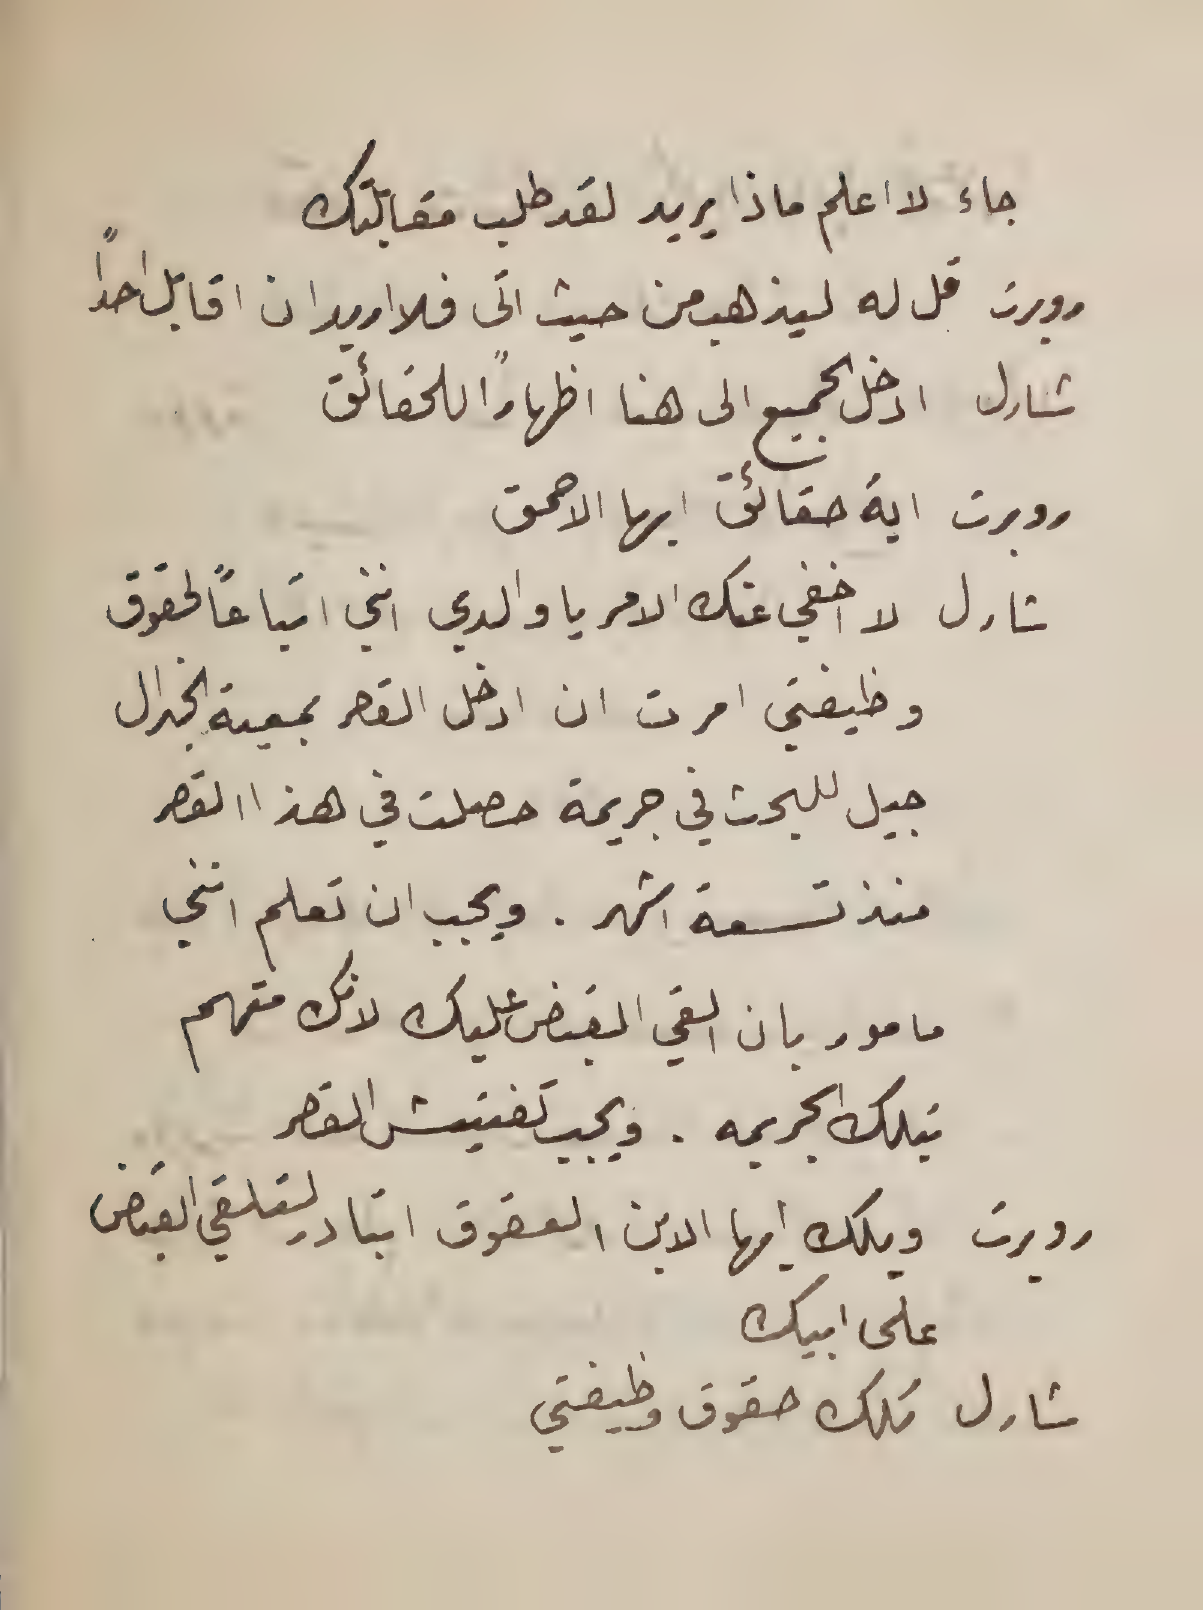 جاء لا اعلم ماذا يريد لقد طلب مقابلتك
روبرت قل له ليذهب من حيث اتى فلا اريد ان اقابل احداً
شارل ادخل الجميع الى هنا اظهاراً للحقائق
روبرت اية حقائق ايها الاحمق
شارل لا اخفي عنك الامر يا والدي انني اتباعاً لحقوق
وظيفتي امرت ان ادخل القصر بمعية الجنرال
جيل للبحث في جريمة حصلت في هذا القصر
منذ تسعة اشهر . ويجب ان تعلم انني
مامور بان القي القبض عليك لانك متهم
بتلك الجريمه . ويجب تفتيش القصر
روبرت ويلك أيها الابن العقوق اتبادر لتلقي القبض
على ابيك
شارل تلك حقوق وظيفتي